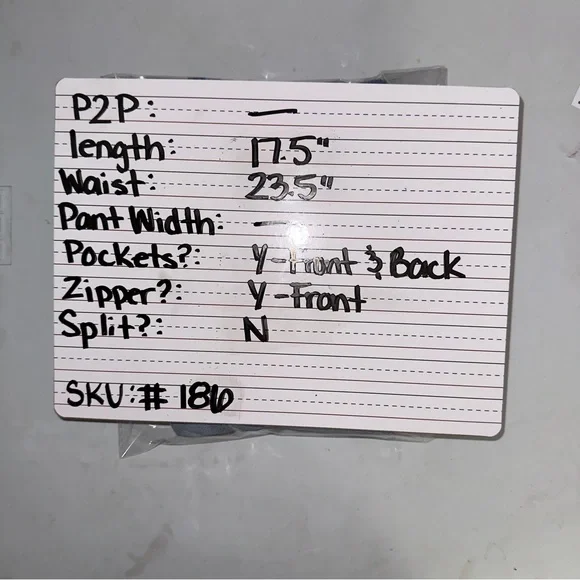 P2P: —
length: 17.5"
Waist: 23.5"
Pant Width: —
Pockets?: Y-Front & Back
Zipper?: Y-Front
Split?: N
SKU:# 186